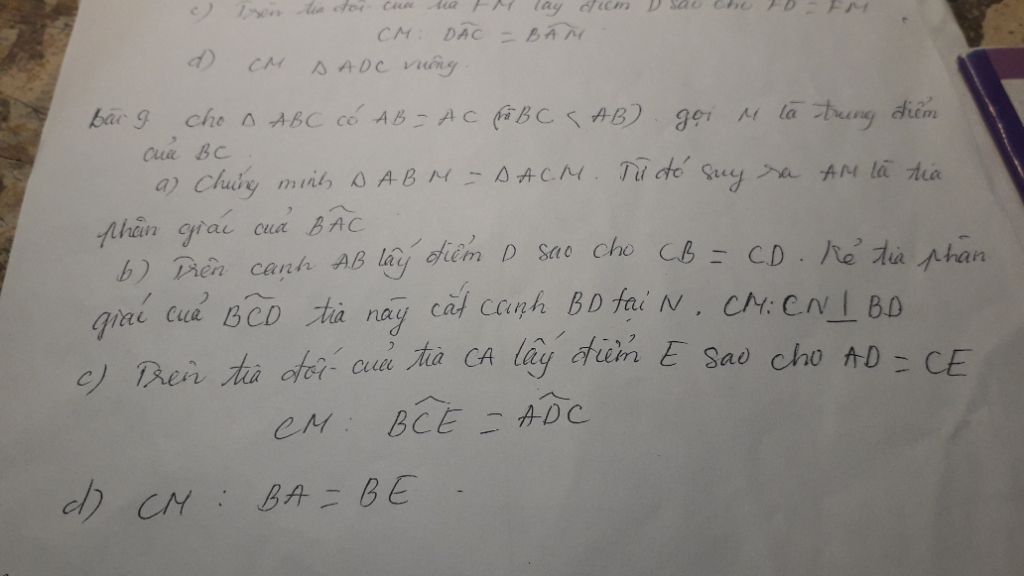 c) Trên tia đối của tia FM lấy điểm D sao cho FD = FM
CM: DÂC = BÂM
d) CM Δ ADC vuông.
bài 9 cho Δ ABC có AB = AC (BC < AB). gọi M là trung điểm
của BC.
a) Chứng minh Δ ABM = Δ ACM. Từ đó suy ra AM là tia
phân giác của BÂC
b) Trên cạnh AB lấy điểm D sao cho CB = CD. Kẻ tia phân
giác của BĈD tia này cắt cạnh BD tại N. CM: CN ⊥ BD
c) Trên tia đối của tia CA lấy điểm E sao cho AD = CE
CM: BĈE = AD̂C
d) CM : BA = BE.